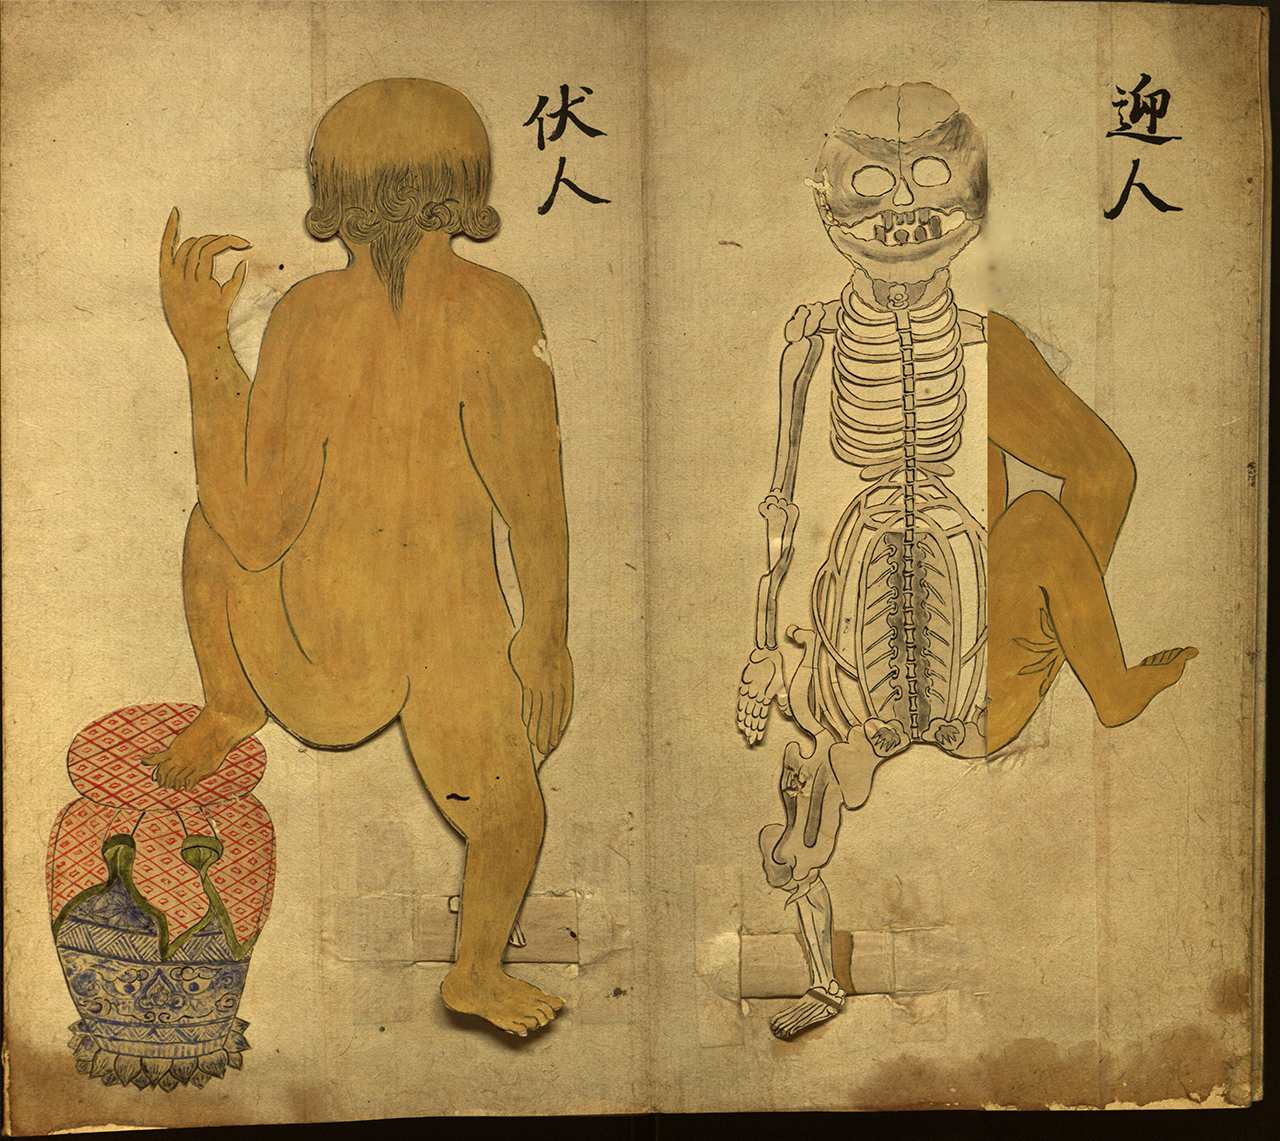 迎人
伏人